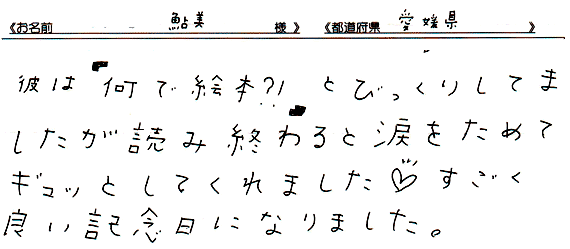 《お名前 鮎美 様 》 《都道府県 愛媛県 》
彼は「何で絵本?!」とびっくりしてま
したが読み終わると涙をためて
ギュッとしてくれました♡すごく
良い記念日になりました。